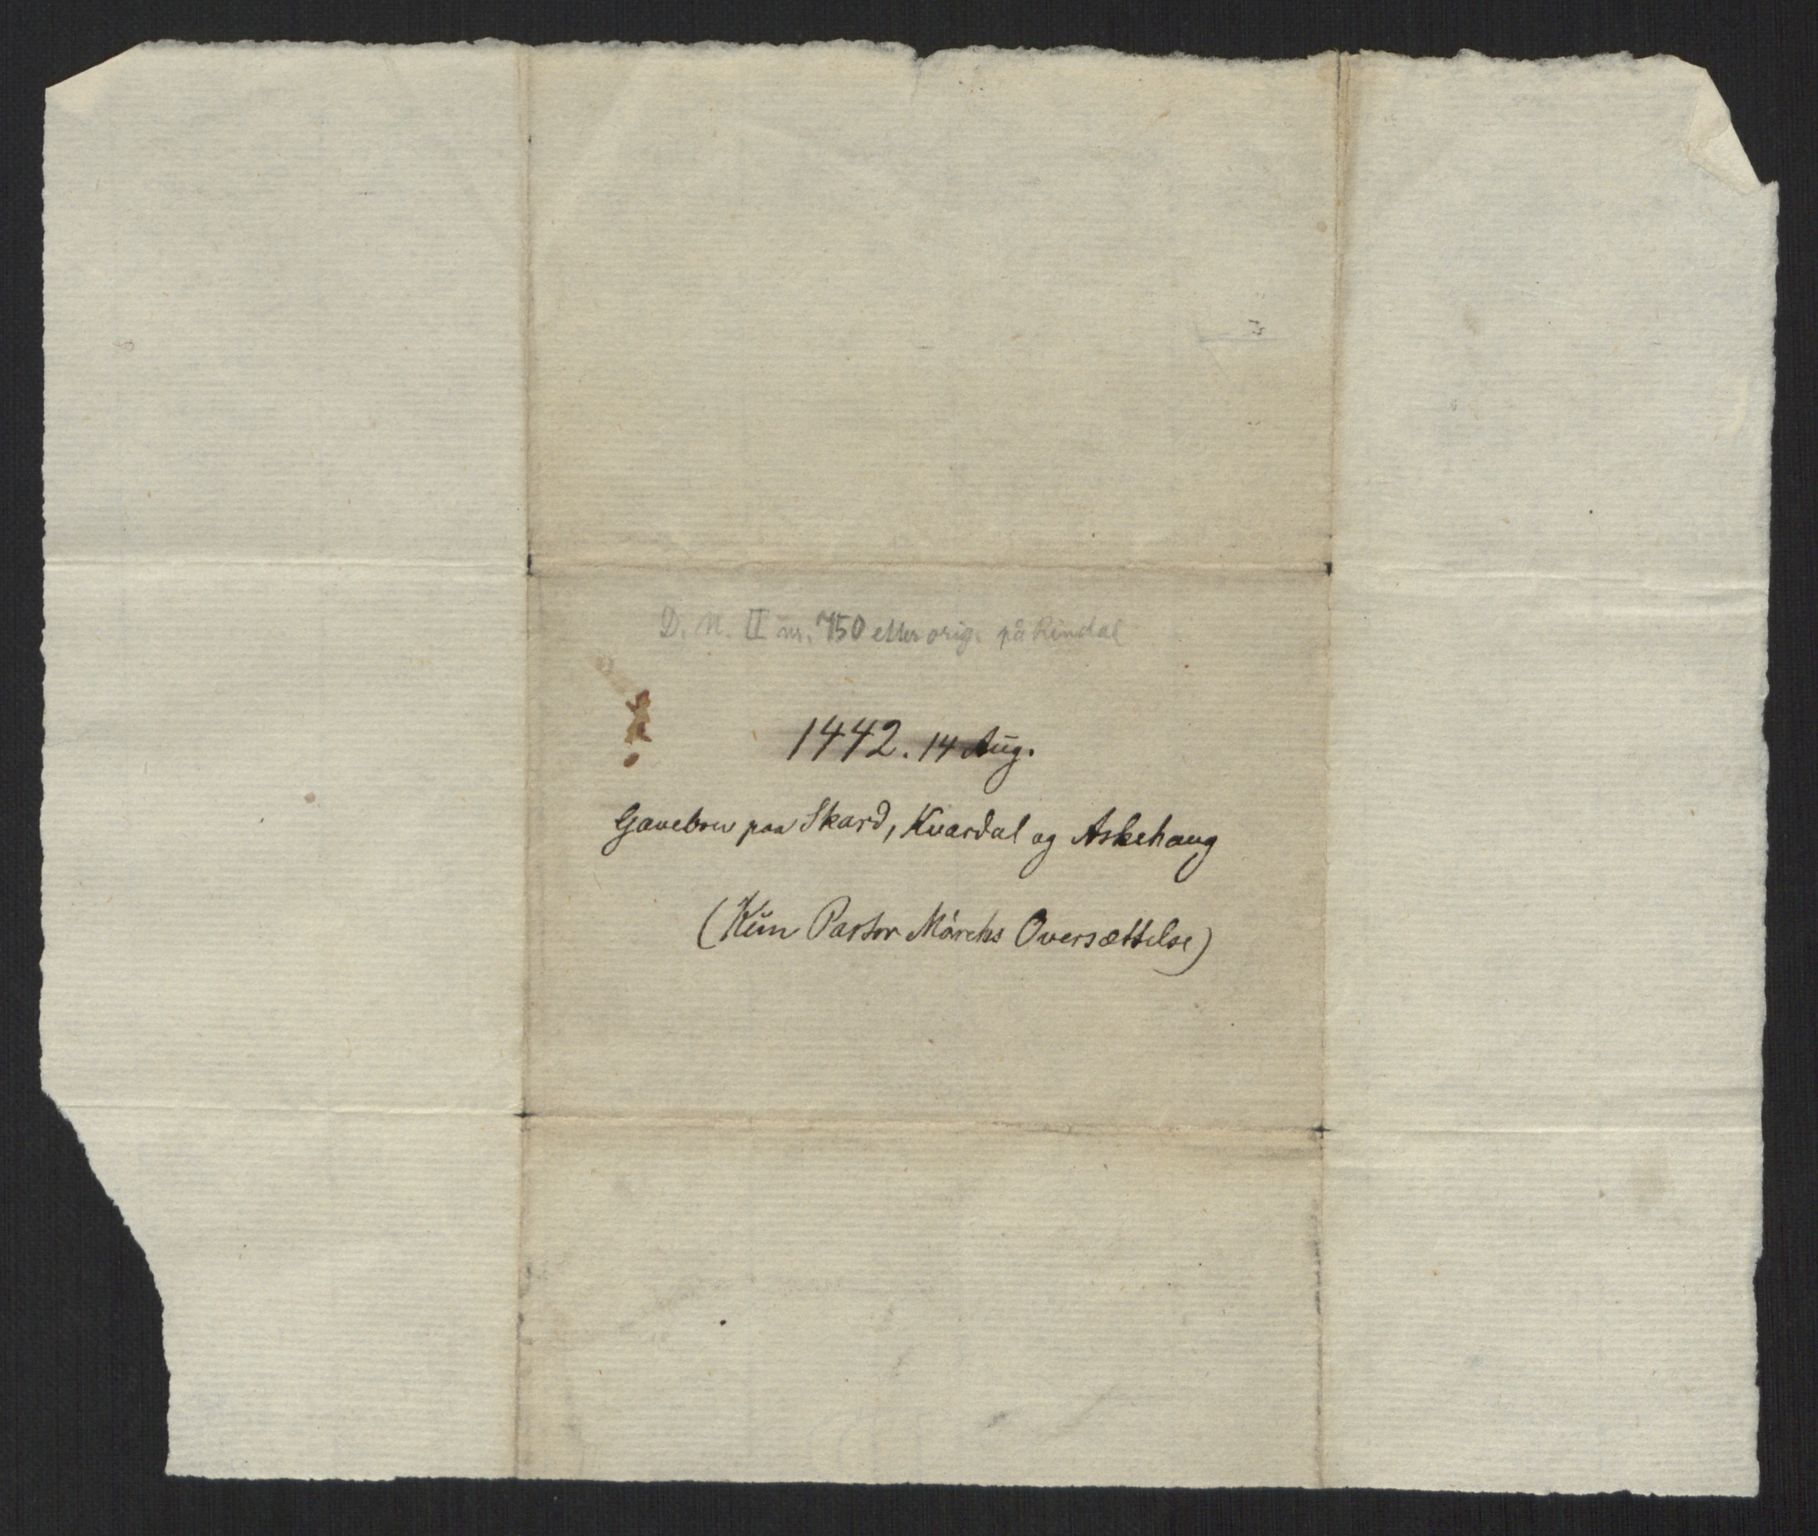 D. N. II nr. 750 etter orig. på Rindal
1442. 14 Aug.
Gavebrev paa Skard, Kvardal og Askehaug
(Kun Pastor Mörchs Oversættelse)